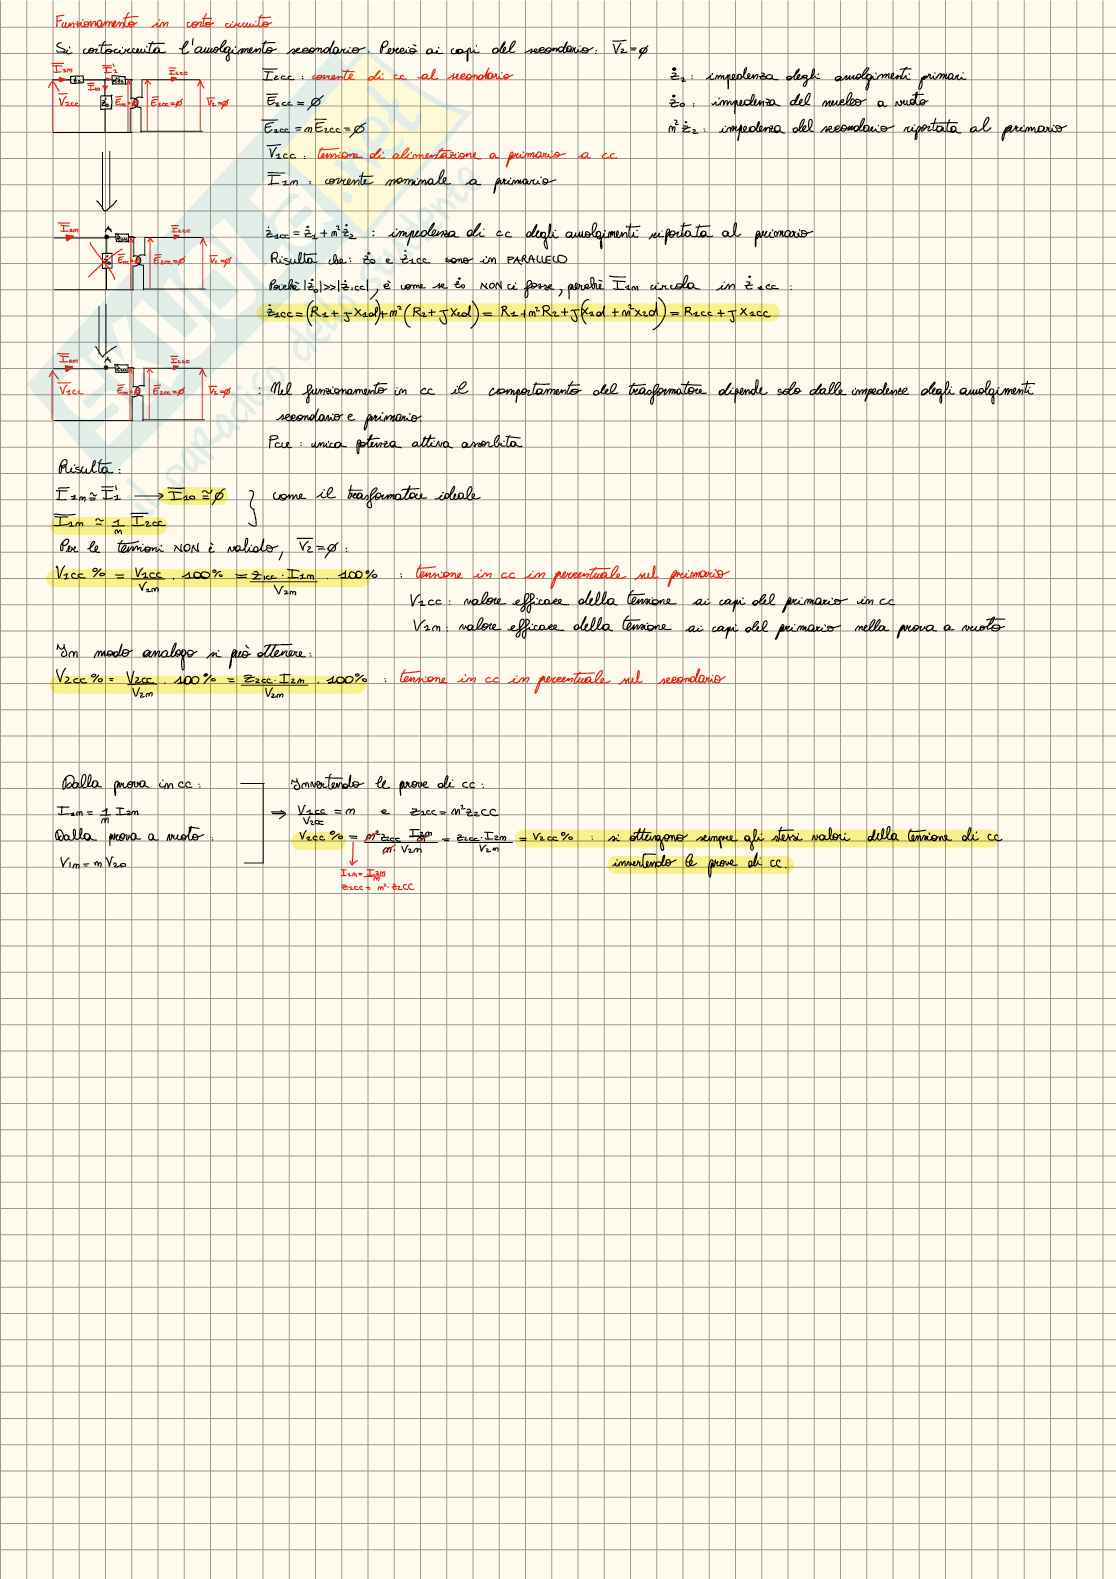 Funzionamento in corto circuito
Si cortocircuita l'avvolgimento secondario. Perciò ai capi del secondario: V̅₂=∅
I̅₂cc : corrente di cc al secondario
ż₁ : impedenza degli avvolgimenti primari
E̅₂cc = ∅
ż₀ : impedenza del nucleo a vuoto
E̅₁cc = m E̅₂cc = ∅
m² ż₂ : impedenza del secondario riportata al primario
V̅₁cc : tensione di alimentazione a primario a cc
I̅₁m : corrente nominale a primario
ż₁cc = ż₁ + m² ż₂ : impedenza di cc degli avvolgimenti riportata al primario
Risulta che: ż₀ e ż₁cc sono in PARALLELO
Poiché |ż₀|>>|ż₁cc|, è come se ż₀ NON ci fosse, perché I̅₁m circola in ż₁cc :
ż₁cc = (R₁ + j X₁d) + m² (R₂ + j X₂d) = R₁ + m² R₂ + j (X₁d + m² X₂d) = R₁cc + j X₁cc
: Nel funzionamento in cc il comportamento del trasformatore dipende solo dalle impedenze degli avvolgimenti
secondario e primario
Pcu : unica potenza attiva assorbita
Risulta:
I̅₁m ≅ I̅₁' → I̅₁₀ ≅ ∅ } come il trasformatore ideale
I̅₁m ≅ 1/m I̅₂cc
Per le tensioni NON è valido, V̅₂=∅ :
V₁cc % = V₁cc/V₁m . 100% = z₁cc · I₁m/V₁m . 100% : tensione in cc in percentuale nel primario
V₁cc : valore efficace della tensione ai capi del primario in cc
V₁m : valore efficace della tensione ai capi del primario nella prova a vuoto
In modo analogo si può ottenere:
V₂cc % = V₂cc/V₂m . 100% = z₂cc · I₂m/V₂m . 100% : tensione in cc in percentuale nel secondario
Dalla prova in cc :
I₁m = 1/m I₂m
Dalla prova a vuoto :
V₁m = m V₂₀
Invertendo le prove di cc :
⇒ V₁cc/V₂cc = m e z₁cc = m² z₂cc
V₁cc % = m² z₂cc I₂m/m / m · V₂m = z₂cc · I₂m/V₂m = V₂cc % : si ottengono sempre gli stessi valori della tensione di cc
invertendo le prove di cc.
I₁m = I₂m/m
z₁cc = m² · z₂cc